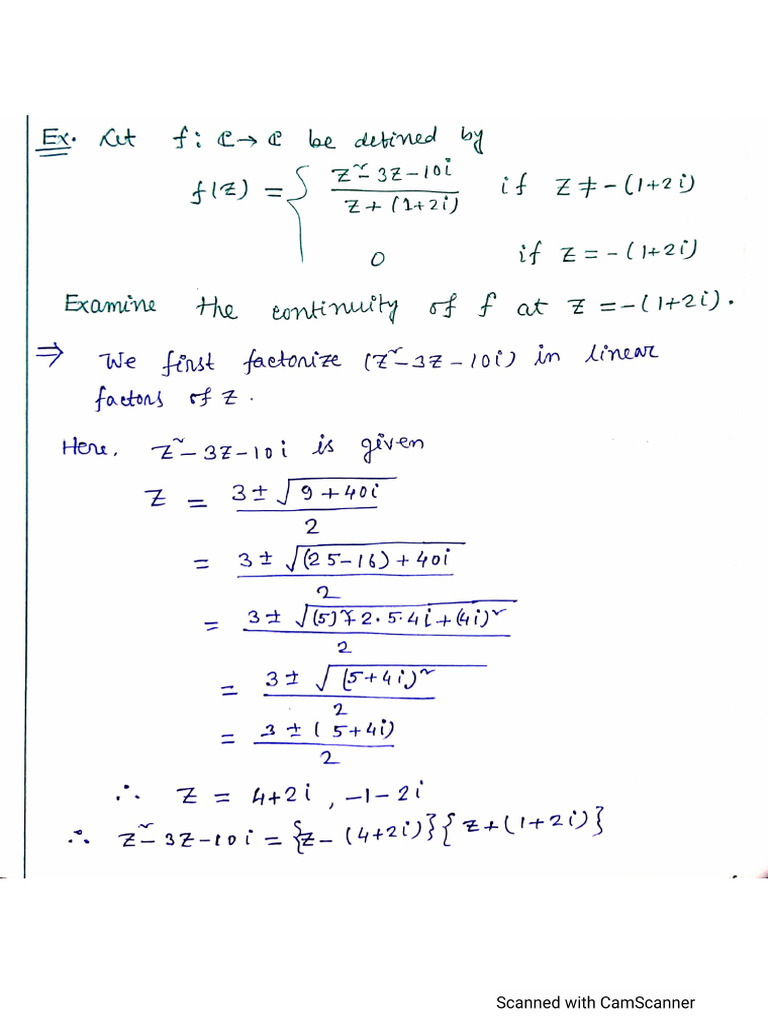 Ex. Let f: ℂ→ℂ be defined by
f(z) = { (z² - 3z - 10i) / (z + (1+2i)) if z ≠ -(1+2i)
0 if z = -(1+2i)
Examine the continuity of f at z = -(1+2i).
⇒ We first factorize (z² - 3z - 10i) in linear
factors of z.
Here, z² - 3z - 10i is given
z = (3 ± √(9+40i)) / 2
= (3 ± √((25-16)+40i)) / 2
= (3 ± √((5)²+2.5.4i+(4i)²)) / 2
= (3 ± √((5+4i)²)) / 2
= (3 ± (5+4i)) / 2
∴ z = 4+2i, -1-2i
∴ z² - 3z - 10i = {z - (4+2i)}{z + (1+2i)}
Scanned with CamScanner